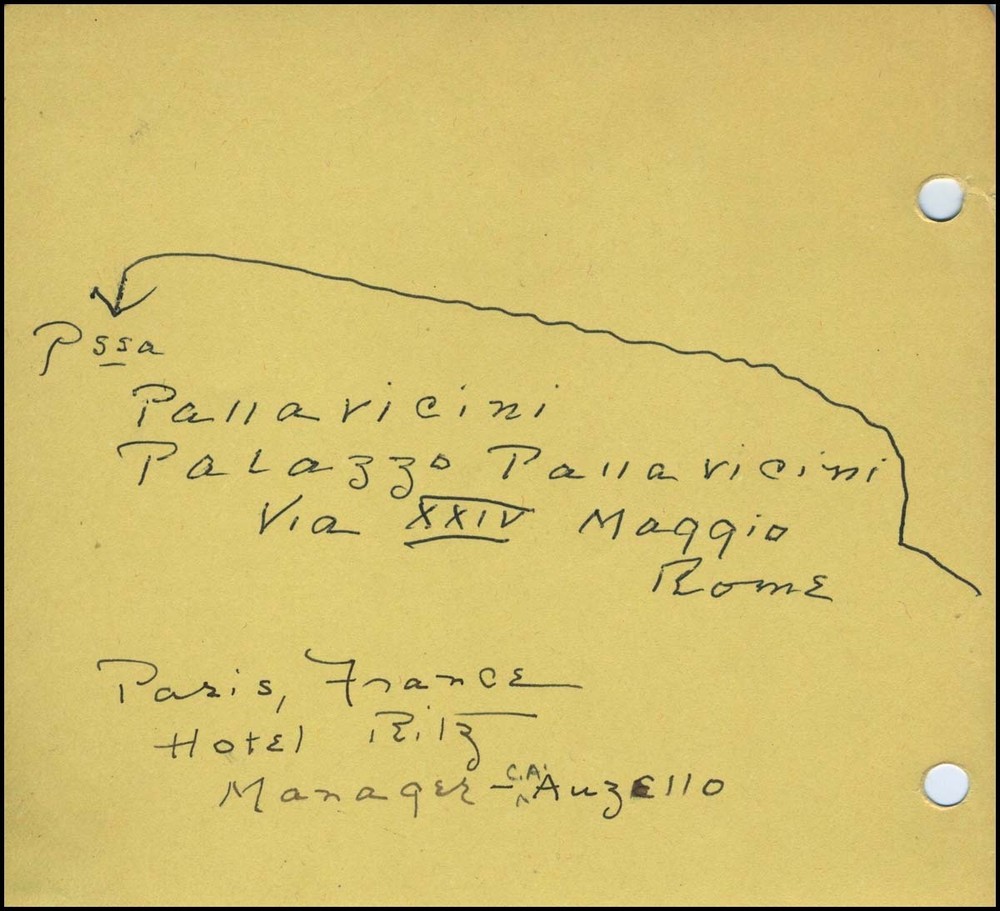 Pssa
Pallavicini
Palazzo Pallavicini
Via XXIV Maggio
Rome
Paris, France
Hotel Ritz
Manager - C.A. Auzello